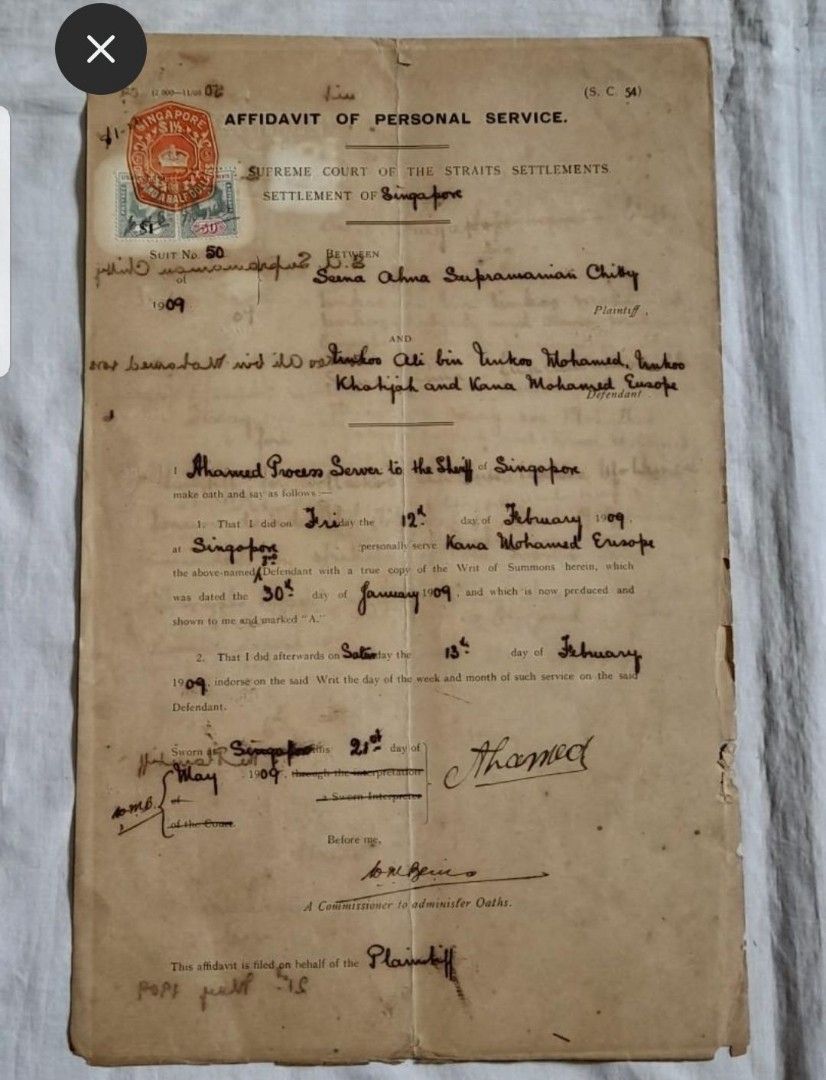 (S. C. 54)
AFFIDAVIT OF PERSONAL SERVICE.
SINGAPORE
$1½
SUPREME COURT OF THE STRAITS SETTLEMENTS
SETTLEMENT OF Singapore
$1
SUIT No. 50
of
1909
BETWEEN
Seena Ahna Supramanian Chitty
Plaintiff,
AND
Tunkoo Ali bin Tunkoo Mohamed, Tunkoo
Khatijah and Kana Mohamed Eusope
Defendant.
I Ahamed Process Server to the Sheriff of Singapore
make oath and say as follows:—
1. That I did on Friday the 12th day of February 1909,
at Singapore personally serve Kana Mohamed Eusope
the above-named 3rd Defendant with a true copy of the Writ of Summons herein, which
was dated the 30th day of January 1909, and which is now produced and
shown to me and marked "A."
2. That I did afterwards on Saturday the 13th day of February
1909, indorse on the said Writ the day of the week and month of such service on the said
Defendant.
Sworn at Singapore this 21st day of
May 1909, through the interpretation
of a Sworn Interpreter
of the Court.
Ahamed
Before me,
A Commissioner to administer Oaths.
This affidavit is filed on behalf of the Plaintiff
21st May 1909